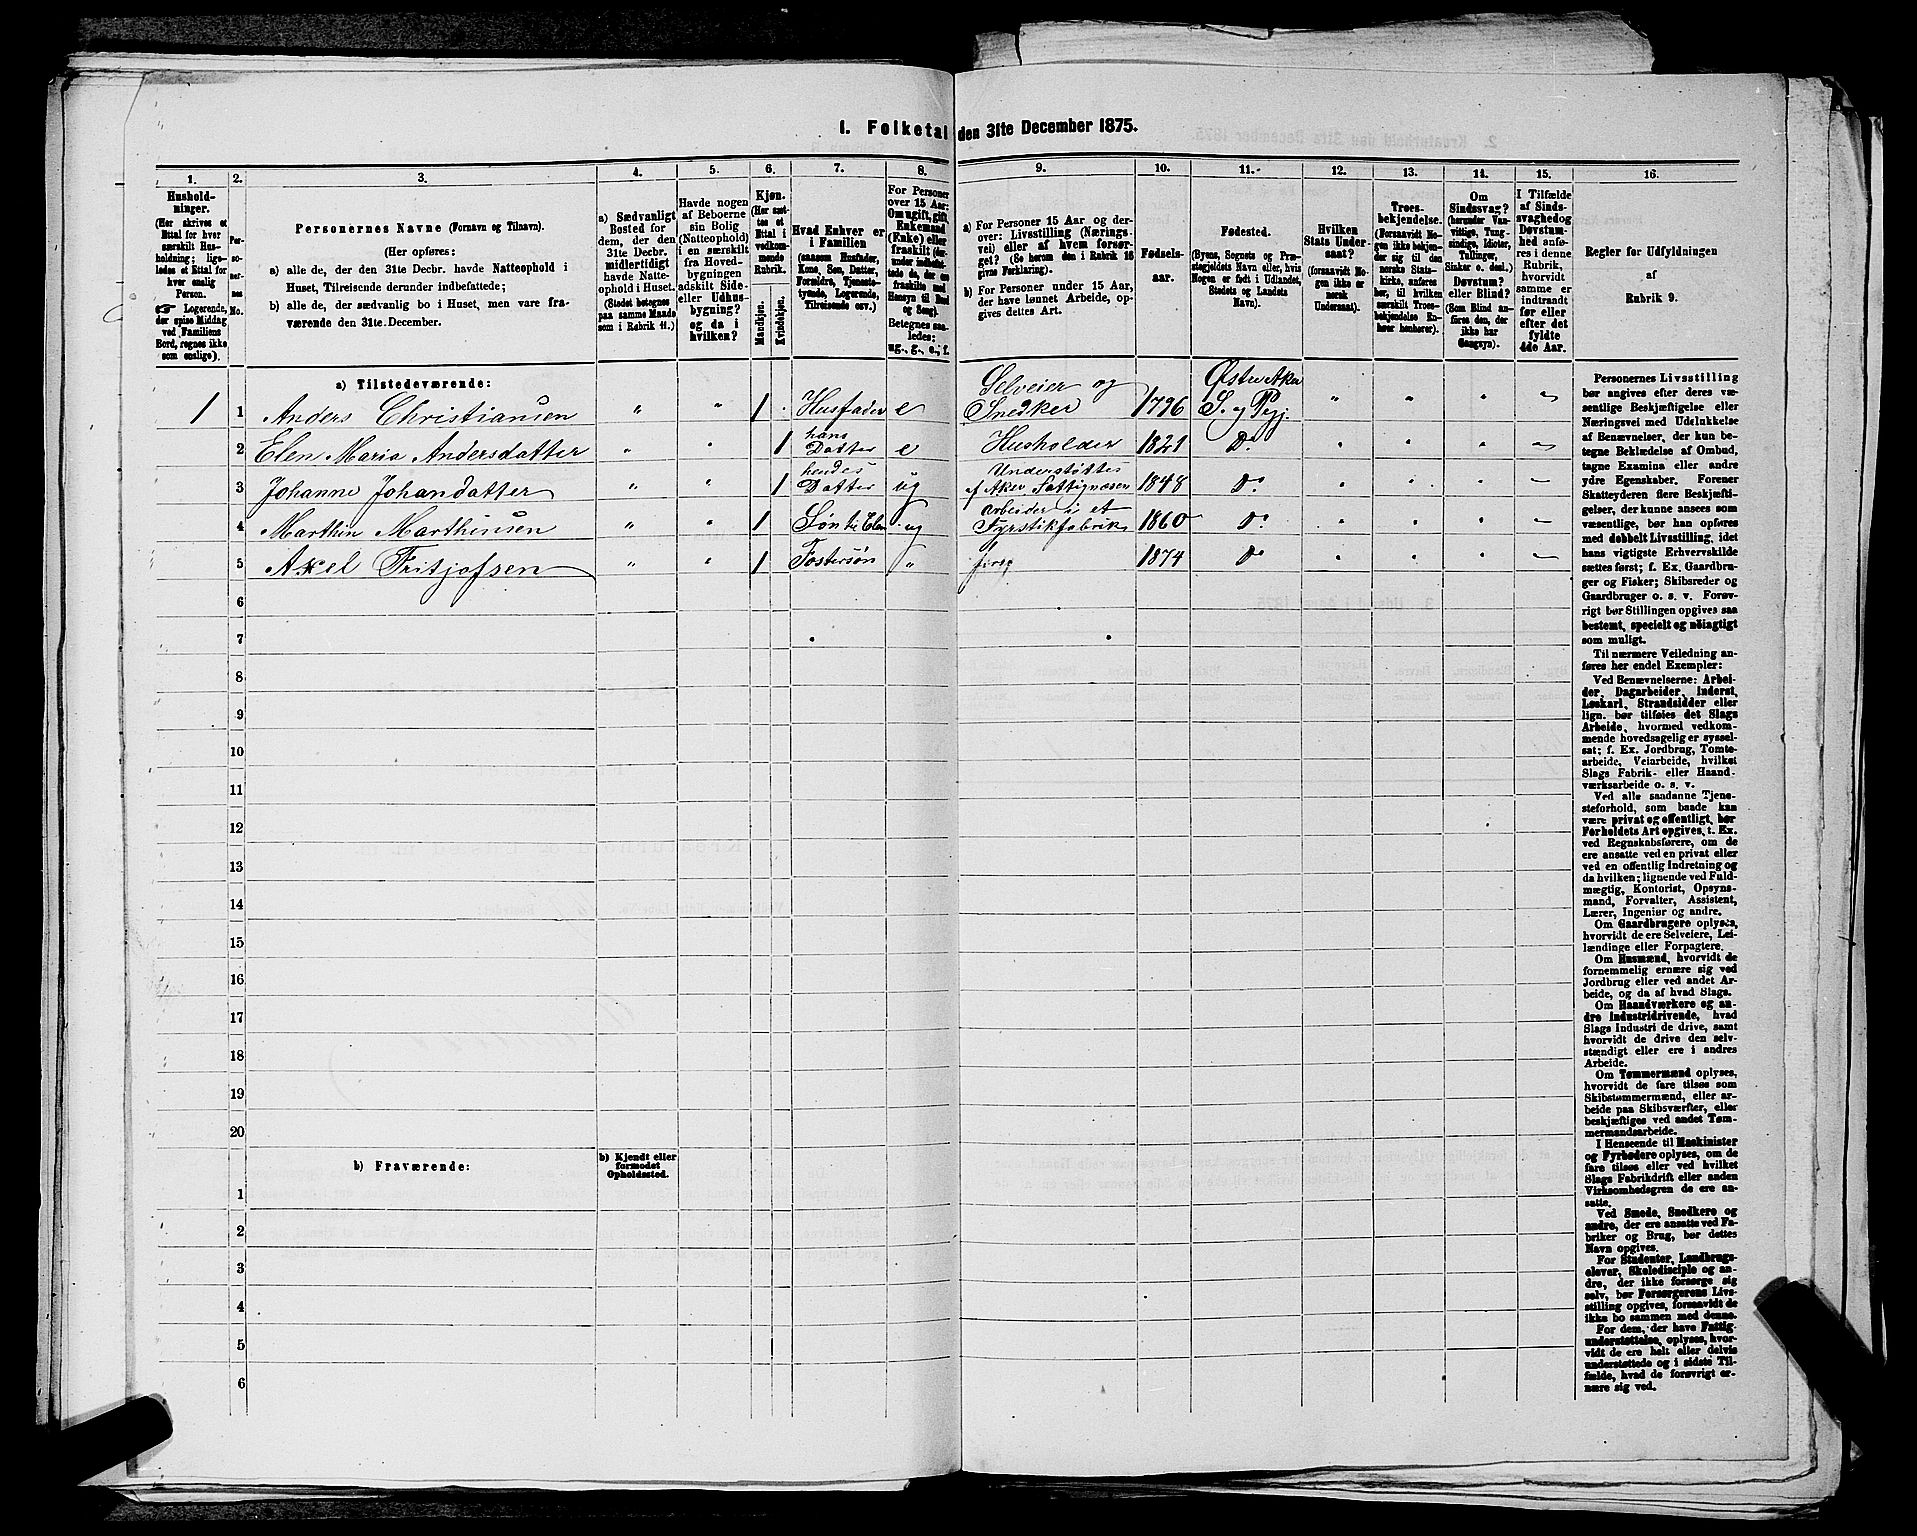 1. Folketal den 31te December 1875.
1.
Hushold-
ninger.
(Her skrives et
Ettal for hver
særskilt Hus-
holdning; lige-
ledes et Ettal for
hver enslig
Person.
☞ Logerende,
der spise Middag
ved Familiens
Bord, regnes ikke
som enslige).
2.
Per-
so-
ner-
nes
No.
3.
Personernes Navne (Fornavn og Tilnavn).
(Her opføres:
a) alle de, der den 31te Decbr. havde Natteophold i
Huset, Tilreisende derunder indbefattede;
b) alle de, der sædvanlig bo i Huset, men vare fra-
værende den 31te. December.
4.
a) Sædvanligt
Bosted for
dem, der den
31te Decbr.
midlertidigt
havde Natte-
ophold i Huset.
(Stedet betegnes
paa samme Maade
som i Rubrik 11.)
5.
Havde nogen
af Beboerne
sin Bolig
(Natteophold)
i en særskilt
fra Hoved-
bygningen
adskilt Side-
eller Udhus-
bygning?
og da i
hvilken?
6.
Kjøn.
(Her sæt-
tes et
Ettal i
vedkom-
mende
Rubrik.
Mandkjøn.
Kvindekjøn.
7.
Hvad Enhver er
i Familien
(saasom Husfader,
Kone, Søn, Datter,
Forældre, Tjeneste-
tyende, Logerende,
Tilreisende osv.)
8.
For Personer
over 15 Aar:
Om ugift, gift,
Enkemand
(Enke) eller
fraskilt (der-
under indbefat-
tede de, der ere
fraskilte med
Hensyn til Bord
og Seng).
Betegnes saa-
ledes:
ug., g., e., f.
9.
a) For Personer 15 Aar og der-
over: Livsstilling (Nærings-
vei) eller af hvem forsør-
get? (Se herom den i Rubrik 16
gives Forklaring).
b) For Personer under 15 Aar,
der have lønnet Arbeide, op-
gives dettes Art.
10.
Fødsels-
aar.
11.
Fødested.
(Byens, Sognets og Præ-
stegjeldets Navn eller, hvis
Nogen er født i Udlandet,
Stedets og Landets
Navn).
12.
Hvilken
Stats Under-
saat?
(forsaavidt No-
gen ikke er
norsk
Undersaat).
13.
Troes-
bekjendelse.
(Forsaavidt No-
gen ikke bekjen-
der sig til den
norske Stats-
kirke, anføres
her, til hvilken
særskilt Troes-
bekjendelse En-
hver henhører).
14.
Om
Sindssvag?
(herunder Van-
vittige, Tung-
sindige, Idioter,
Tullinger,
Sinker o. desl.)
Døvstum?
eller Blind?
(Som Blind an-
føres den, der
ikke har
Gangsyn).
15.
I Tilfælde
af Sinds-
svaghed og
Døvstum-
hed anfø-
res i denne
Rubrik,
hvorvidt
samme er
indtraadt
før eller
efter det
fyldte
4de Aar.
16.
Regler for Udfyldningen
af
Rubrik 9.
a) Tilstedeværende:
1 1 Anders Christiansen " " 1 . Husfader e Selveier og Snedker 1796 Østre Aker S. og Pgj. " " " "
2 Elen Maria Andersdatter " " 1 hans Datter e Husholder 1821 Do " " " "
3 Johanne Johandatter " " 1 hendes Datter ug Understøttes af Aker Fattigvæsen 1848 Do " " " "
4 Marthin Marthinsen " " 1 Søn til Elen ug Arbeider i et Fyrstikfabrik 1860 Do " " " "
5 Axel Fritjofsen " " 1 Fostersøn " 1874 Do " " " "
6
7
8
9
10
11
12
13
14
15
16
17
18
19
20
b) Fraværende:
b) Kjendt eller
formodet
Opholdssted.
1
2
3
4
5
6
Personernes Livsstilling
bør angives efter deres væ-
sentlige Beskjæftigelse eller
Næringsvei med Udelukkelse
af Benævnelser, der kun be-
tegne Beklædelse af Ombud,
tagne Examina eller andre
ydre Egenskaber. Forener
Skatteyderen flere Beskjæfti-
gelser, der kunne ansees som
væsentlige, bør han opføres
med dobbelt Livsstilling, idet
hans vigtigste Erhvervskilde
sættes først; f. Ex. Gaardbru-
ger og Fisker; Skibsreder og
Gaardbruger o. s. v. Forøv-
rigt bør Stillingen opgives saa
bestemt, specielt og nøiagtigt
som muligt.
Til nærmere Veiledning an-
føres her endel Exempler:
Ved Benævnelserne: Arbei-
der, Dagarbeider, Inderst,
Løskarl, Strandsidder eller
lign. bør tilføies det Slags
Arbeide, hvormed vedkom-
mende hovedsagelig er syssel-
sat; f. Ex. Jordbrug, Tomte-
arbeide, Veiarbeide, hvilket
Slags Fabrik- eller Haand-
værksarbeide o. s. v.
Ved alle saadanne Tjene-
steforhold, som baade kan
være privat og offentligt, bør
Forholdets Art opgives, t. Ex.
ved Regnskabsførere, om de
ere ansatte ved en privat eller
ved en offentlig Indretning og
da hvilken; lignende ved Fuld-
mægtig, Kontorist, Opsyns-
mand, Forvalter, Assistent,
Lærer, Ingeniør og andre.
Om Gaardbrugere oplyses,
hvorvidt de ere Selveiere, Lei-
lændinge eller Forpagtere.
Om Husmænd, hvorvidt de
fornemmelig ernære sig ved
Jordbrug eller ved andet Ar-
beide, og da af hvad Slags.
Om Haandværkere og an-
dre Industridrivende, hvad
Slags Industri de drive, samt
hvorvidt de drive den selv-
stændigt eller ere i andres
Arbeide.
Om Tømmermænd oplyses,
hvorvidt de fare tilsøs som
Skibstømmermænd, eller ar-
beide paa Skibsværfter, eller
beskjæftiges ved andet Tøm-
mermandsarbeide.
I Henseende til Maskinister
og Fyrbødere oplyses, om de
fare tilsøs eller ved hvilket
Slags Fabrikdrift eller anden
Virksomhedsgren de ere an-
satte.
Ved Smede, Snedkere og
andre, der ere ansatte ved Fa-
briker og Brug, bør dettes
Navn opgives.
For Studenter, Landbrugs-
elever, Skoledisciple og an-
dre, der ikke forsørge sig
selv, bør Forsørgerens Livs-
stilling opgives, forsaavidt de
ikke bo sammen med denne.
For dem, der have Fattig-
understøttelse, oplyses, hvor-
vidt de ere helt eller delvis
understøttede og i sidste Til-
fælde, hvad de forøvrigt er-
nære sig ved.